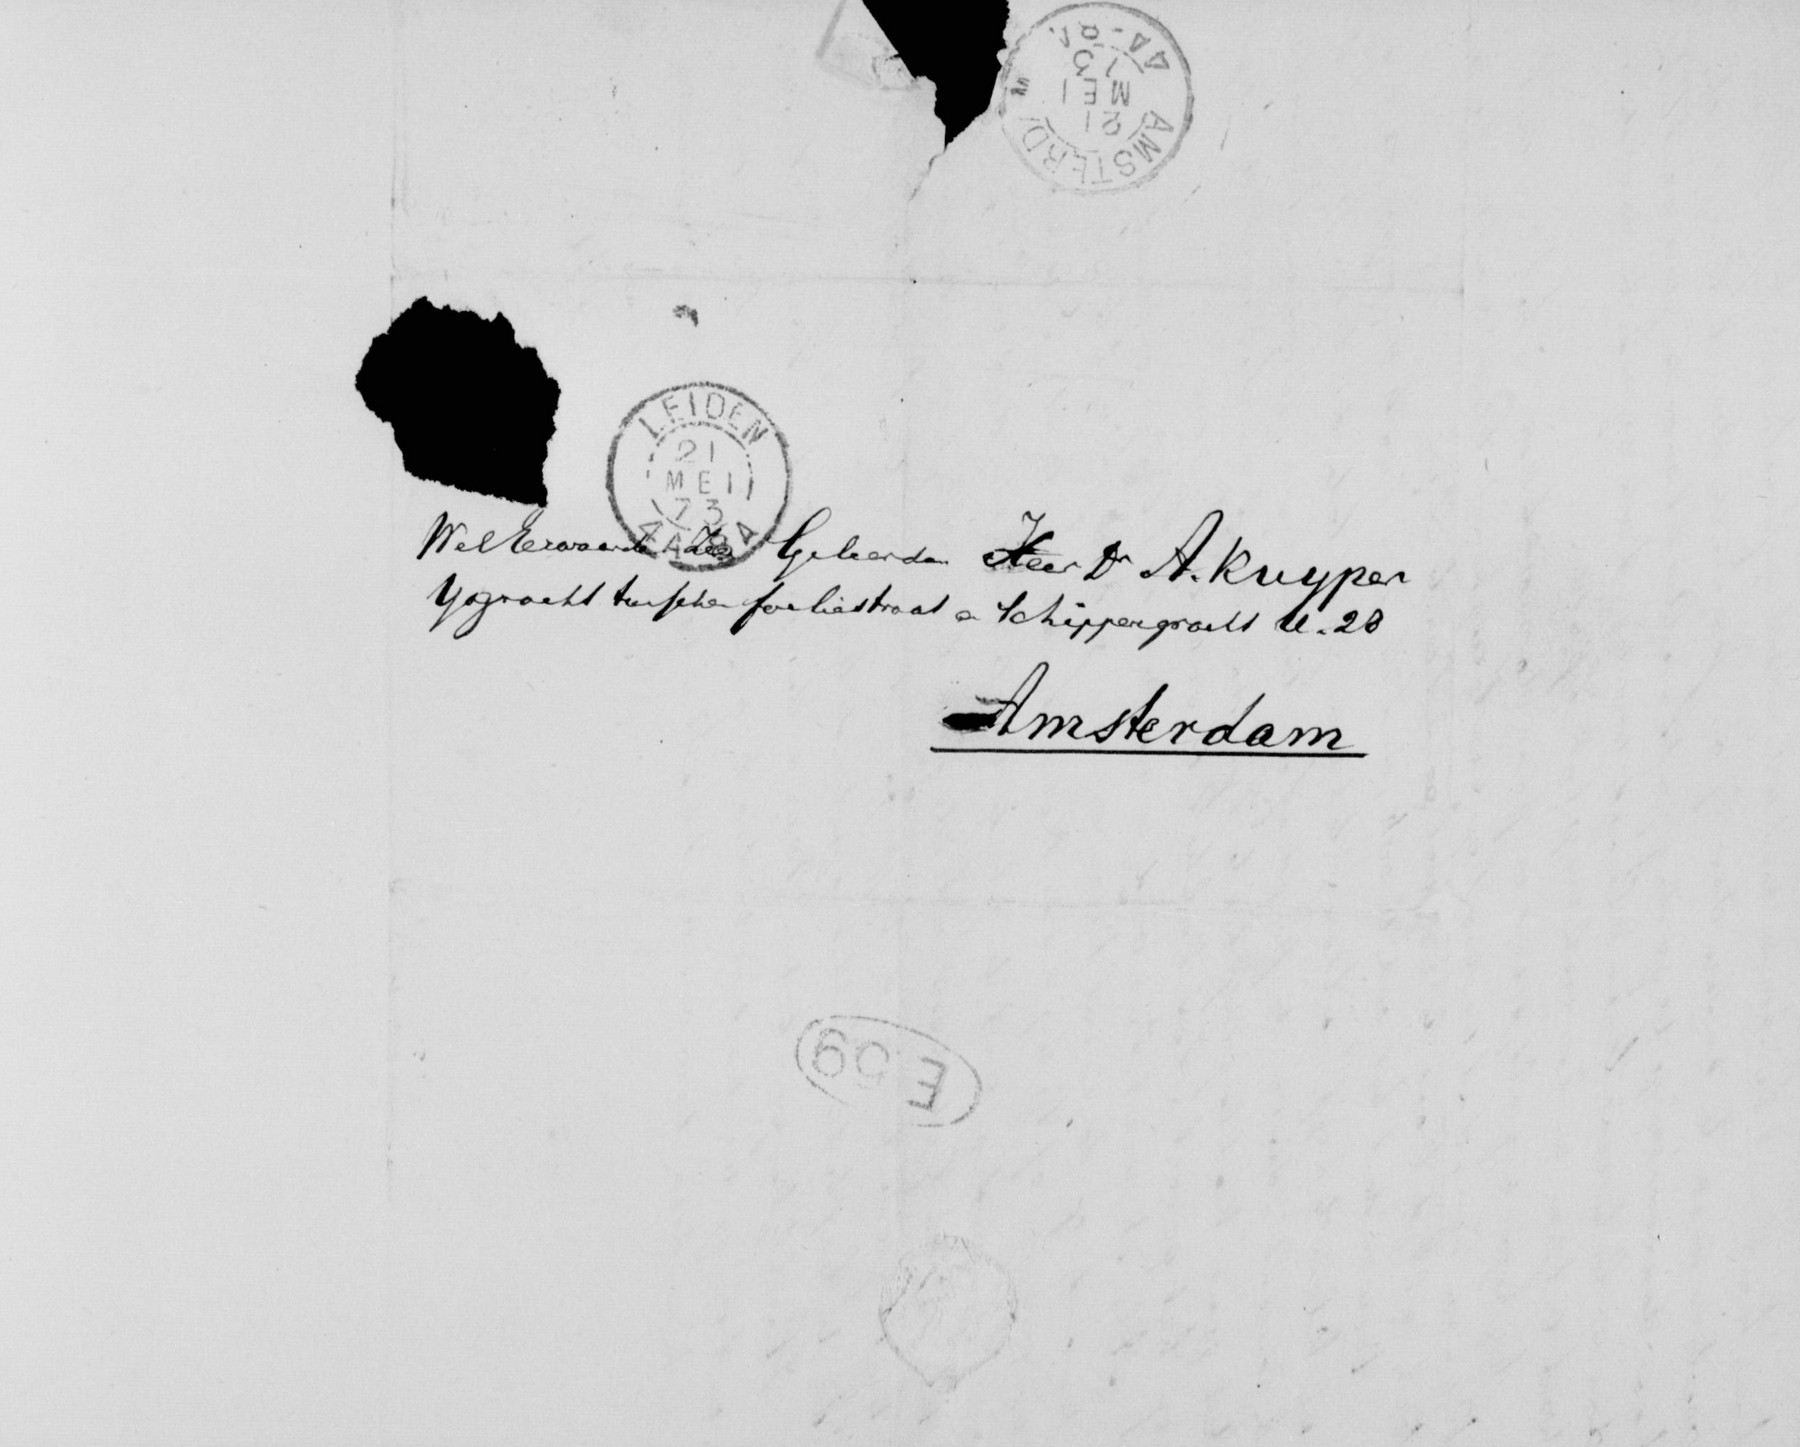 AMSTERD
21
MEI
73
LEIDEN
21
MEI
73
WelEerwaarde Zeer Geleerden Heer Dr A. Kuyper
Ygracht tusschen foeliestraat en Schippergracht U. 28
Amsterdam
E 59